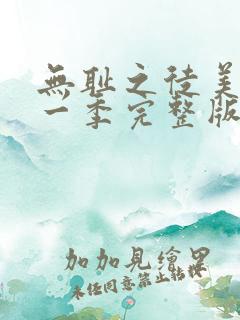 無耻之徒美
一季完整版
加加見繪里
未任同意禁止転帖